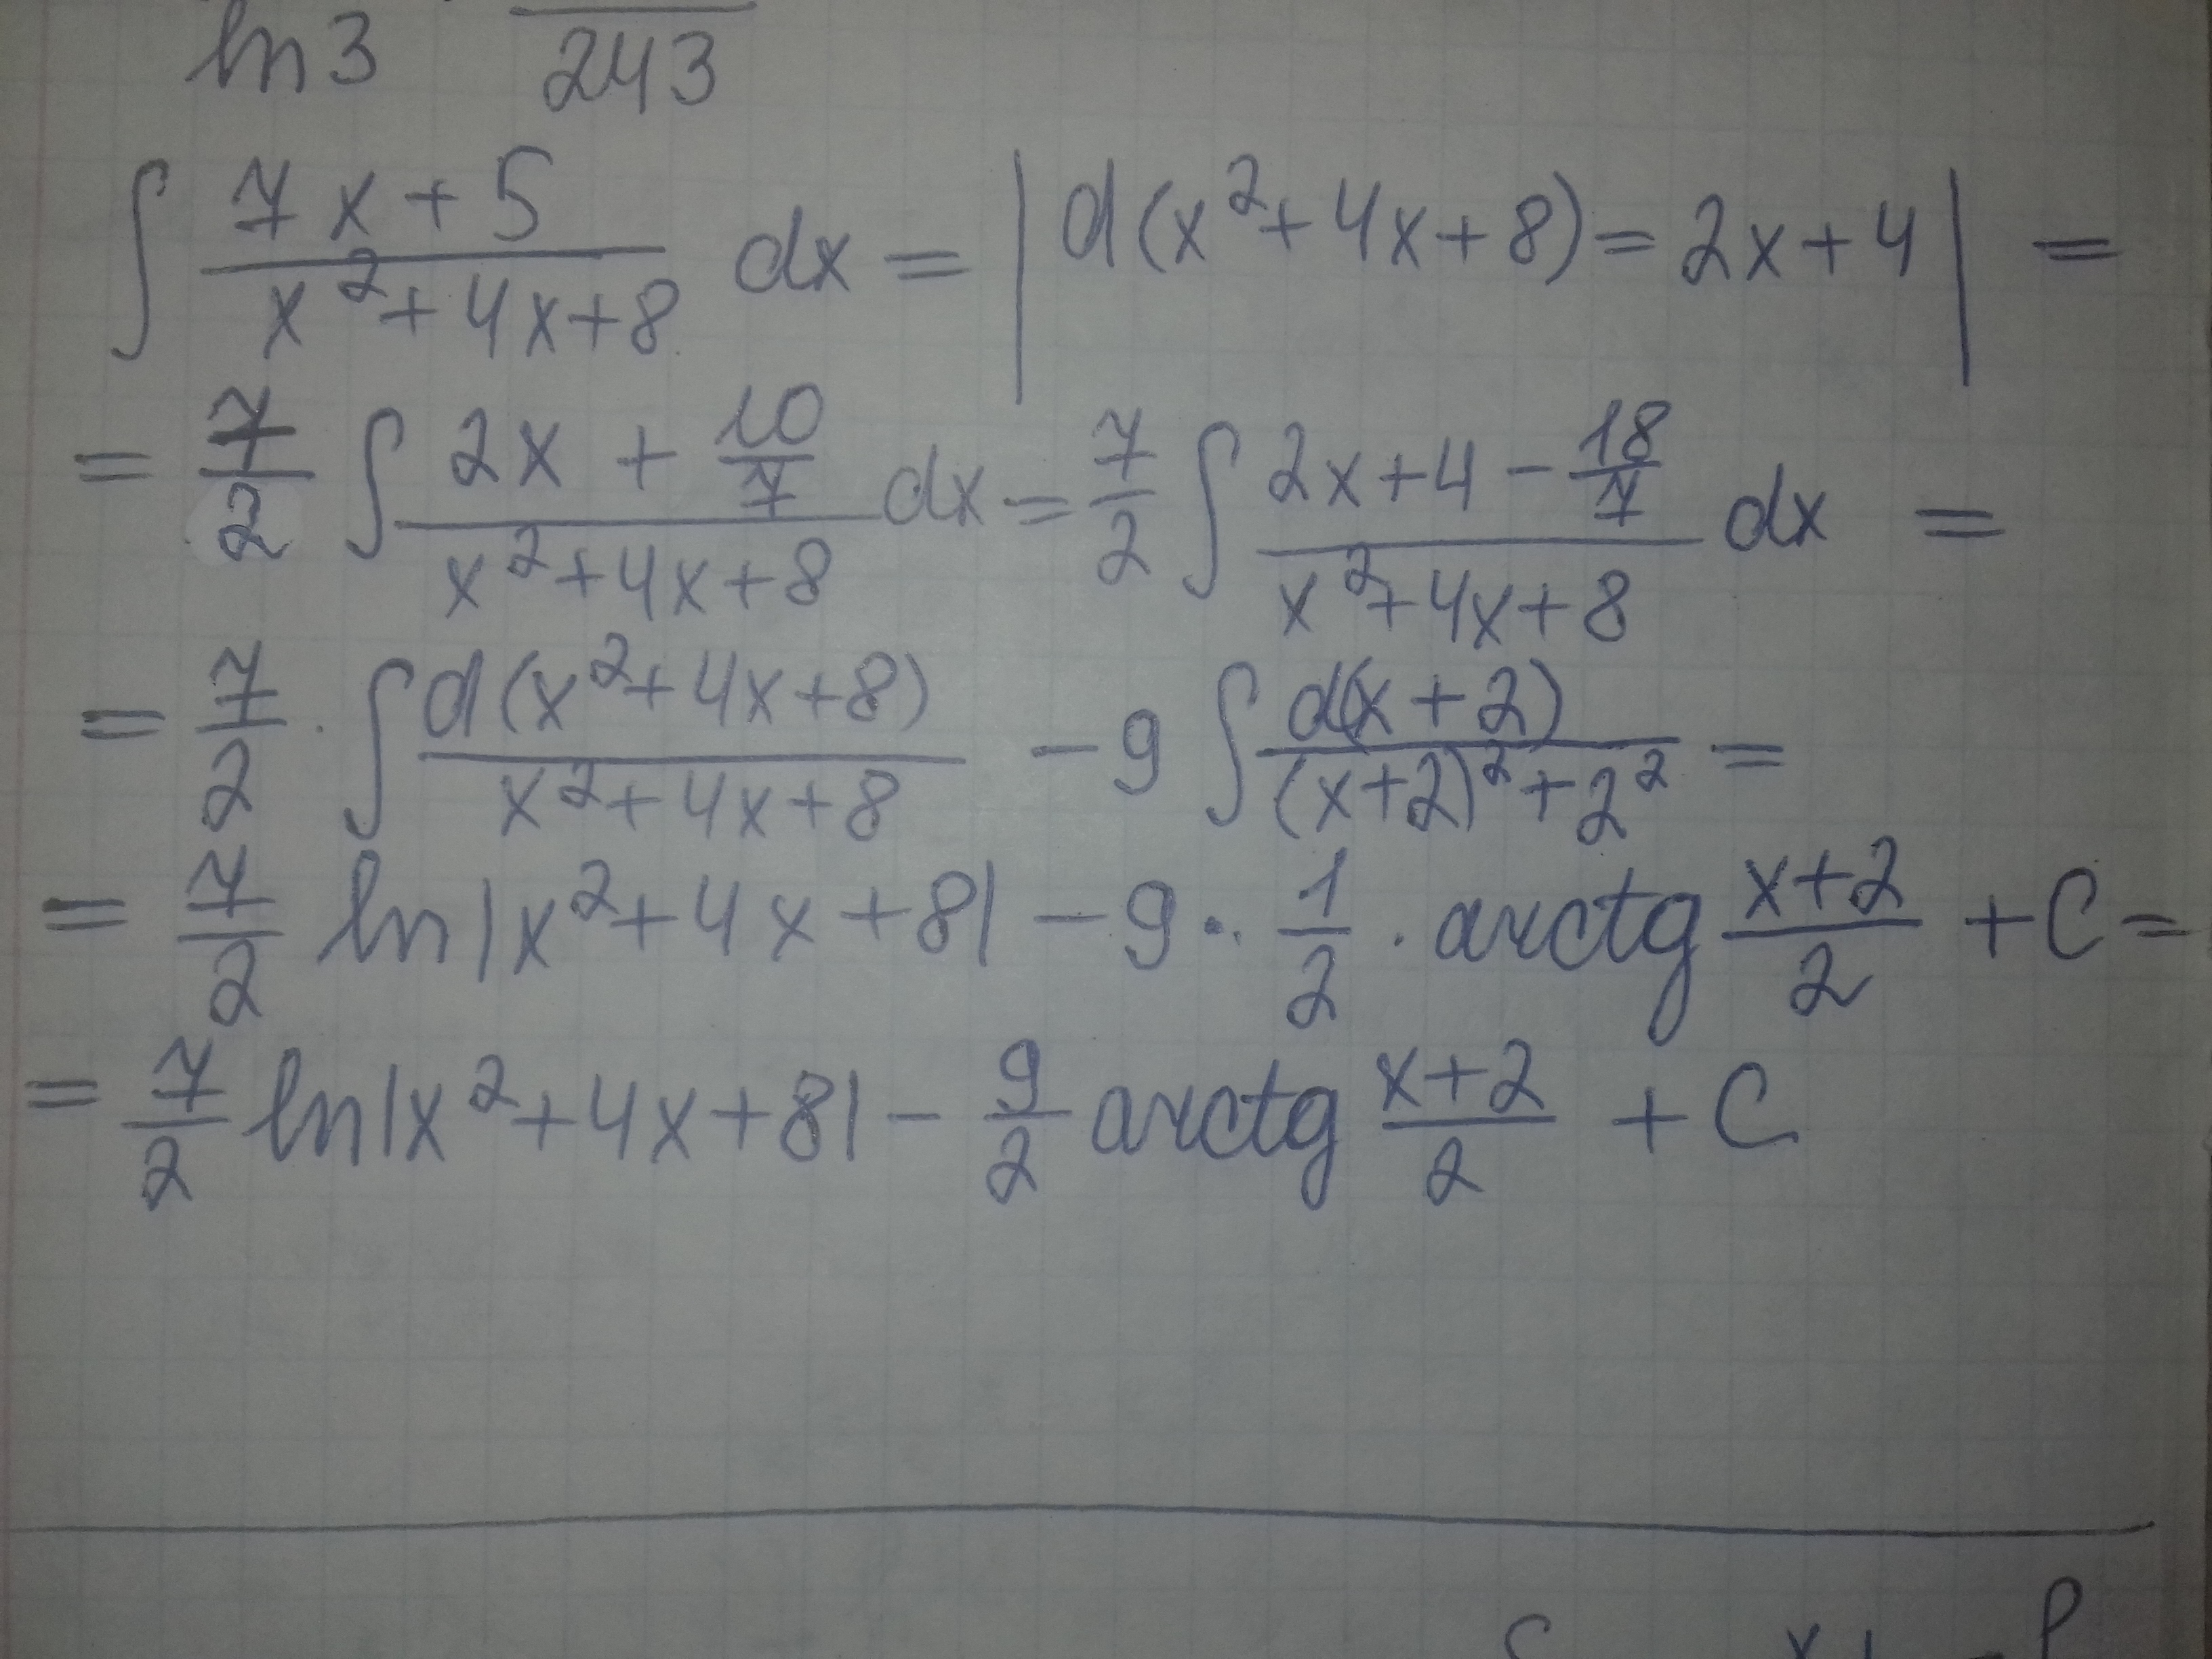 ln 3 · ― / 243
∫ (7x+5)/(x²+4x+8) dx = | d(x²+4x+8) = 2x+4 | =
= 7/2 ∫ (2x + 10/7)/(x²+4x+8) dx = 7/2 ∫ (2x+4 − 18/7)/(x²+4x+8) dx =
= 7/2 · ∫ d(x²+4x+8)/(x²+4x+8) − 9 ∫ d(x+2)/((x+2)²+2²) =
= 7/2 ln|x²+4x+8| − 9 · 1/2 · arctg (x+2)/2 + C =
= 7/2 ln|x²+4x+8| − 9/2 arctg (x+2)/2 + C